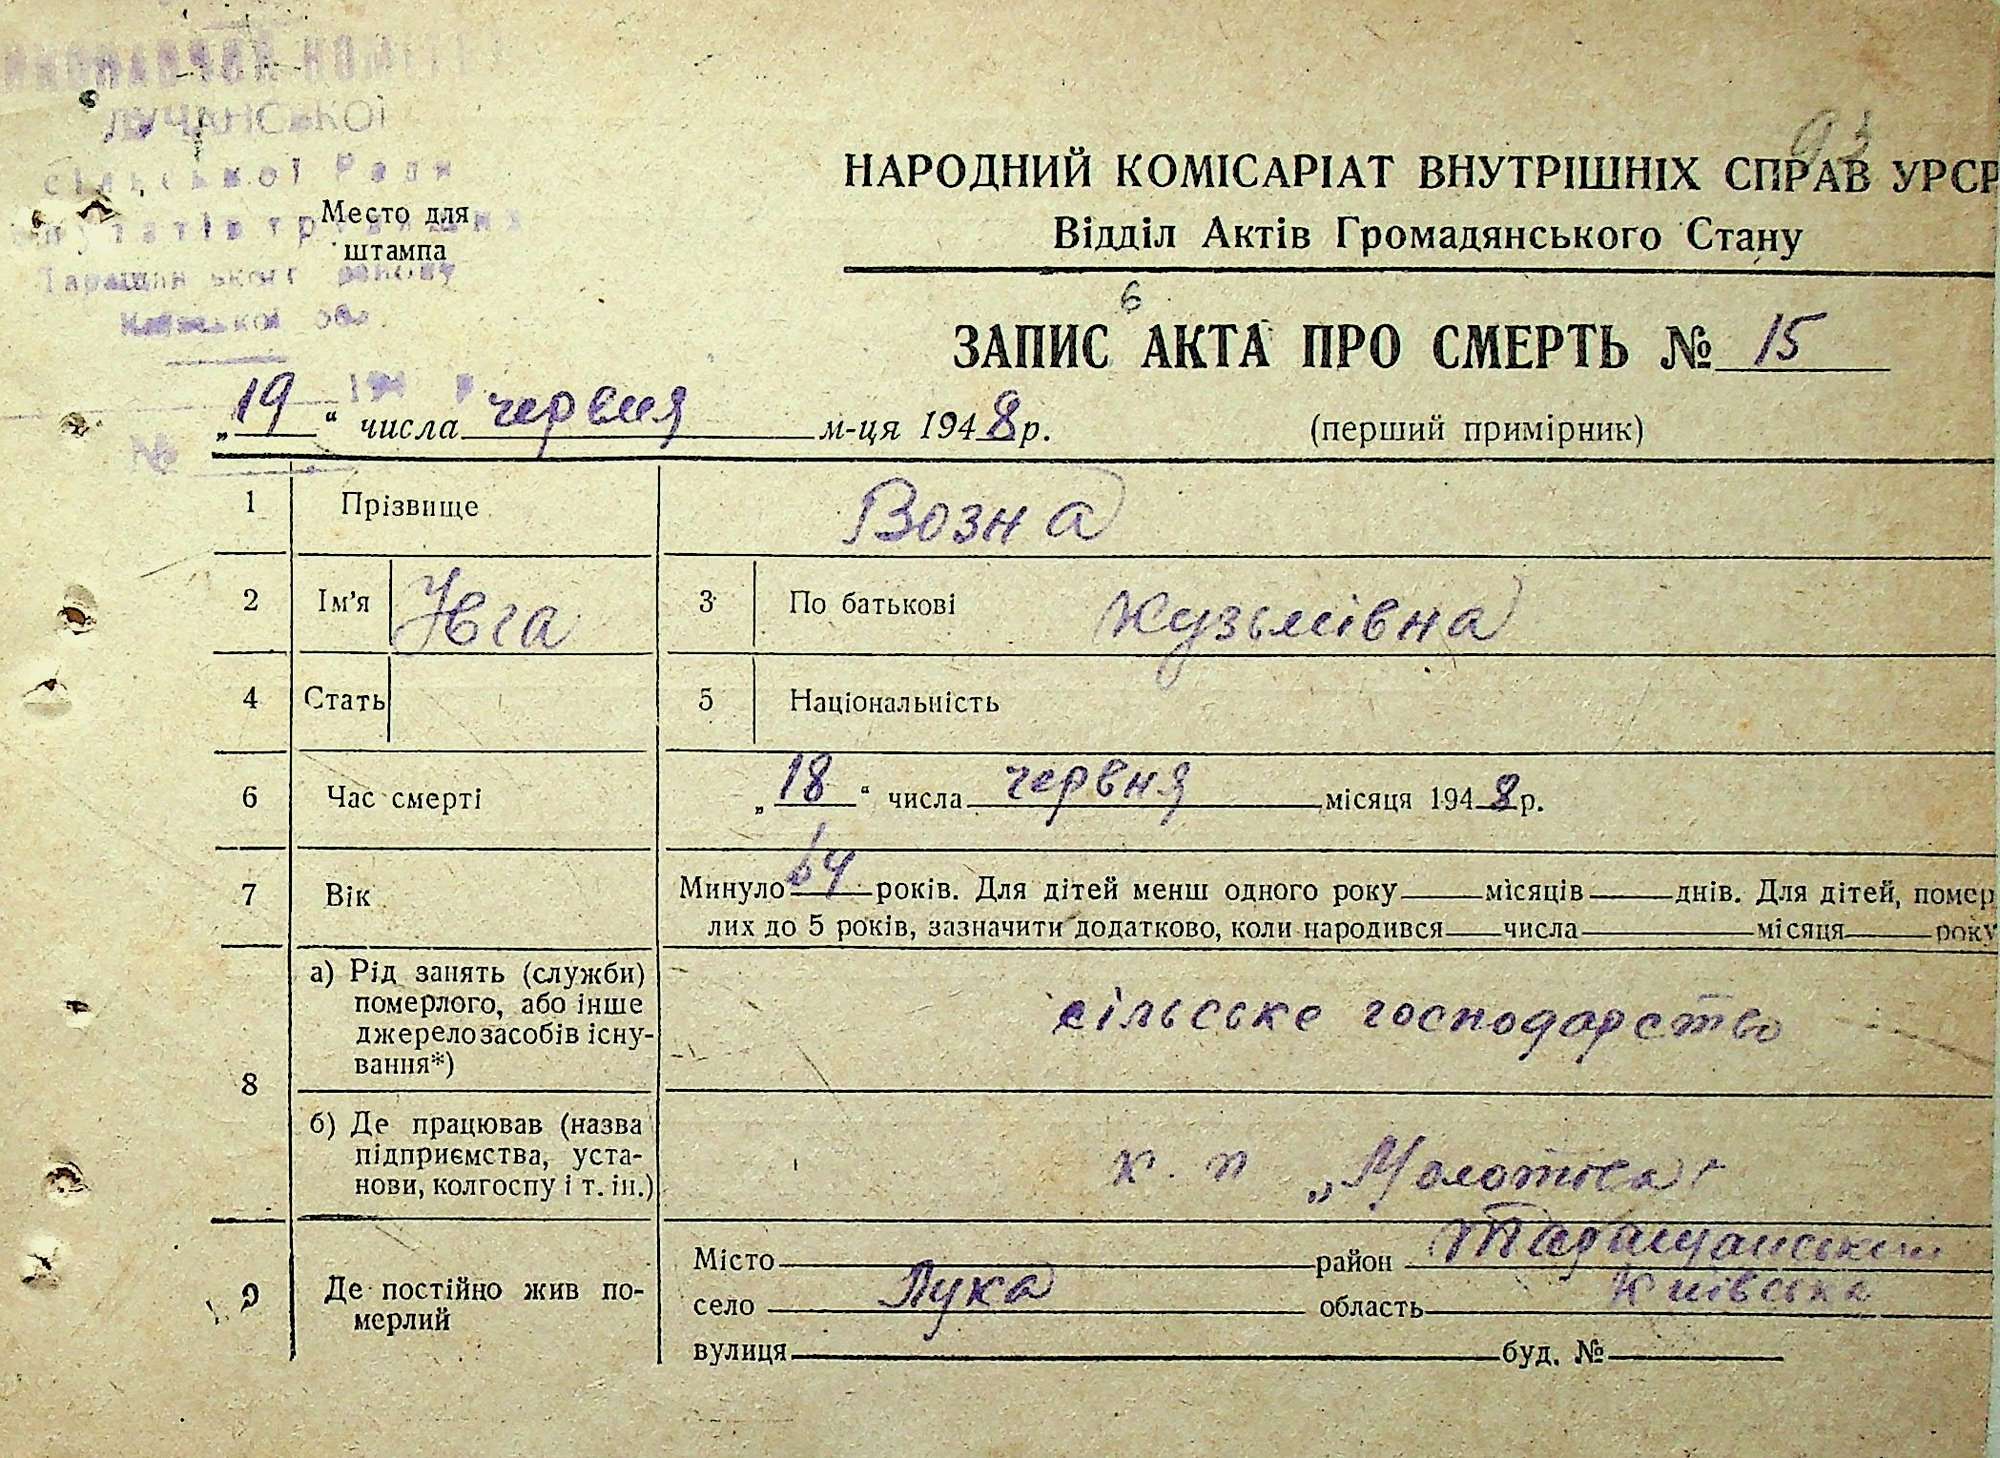 ЛУЧАНСЬКОЇ
сільської Ради
Таращанського району
Київської обл.
Место для
штампа
№
93
НАРОДНИЙ КОМІСАРІАТ ВНУТРІШНІХ СПРАВ УРСР
Відділ Актів Громадянського Стану
6
ЗАПИС АКТА ПРО СМЕРТЬ № 15
„19“ числа червня м-ця 1948 р. (перший примірник)
1 Прізвище Возна
2 Ім'я Юга 3 По батькові Кузьмівна
4 Стать 5 Національність
6 Час смерті „18“ числа червня місяця 1948 р.
7 Вік Минуло 64 років. Для дітей менш одного року місяців днів. Для дітей, помер
лих до 5 років, зазначити додатково, коли народився числа місяця року
8 а) Рід занять (служби)
померлого, або інше
джерело засобів існу-
вання*) сільське господарство
б) Де працював (назва
підприємства, уста-
нови, колгоспу і т. ін.) к. п „Молотова"
9 Де постійно жив по-
мерлий
Місто район Таращанський
село Лука область Київська
вулиця буд. №